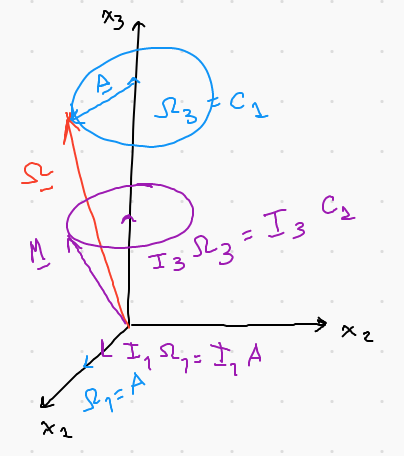 x₃
A
Ω₃ = C₁
Ω
M
I₃ Ω₃ = I₃ C₂
x₂
I₁ Ω₁ = I₁ A
Ω₁ = A
x₁